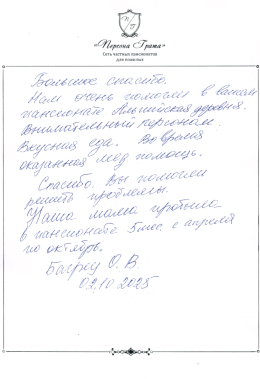 «Персона Грата»
Сеть частных пансионатов
для пожилых
Большое спасибо.
Нам очень помогли в вашем
пансионате Альпийская деревня.
Внимательный персонал.
Вкусная еда. Во время
оказанная мед помощь.
Спасибо. Вы помогли
решить проблемы.
Наша мама пробыла
в пансионате 5 мес. с апреля
по октябрь.
О. В.
02.10.2025